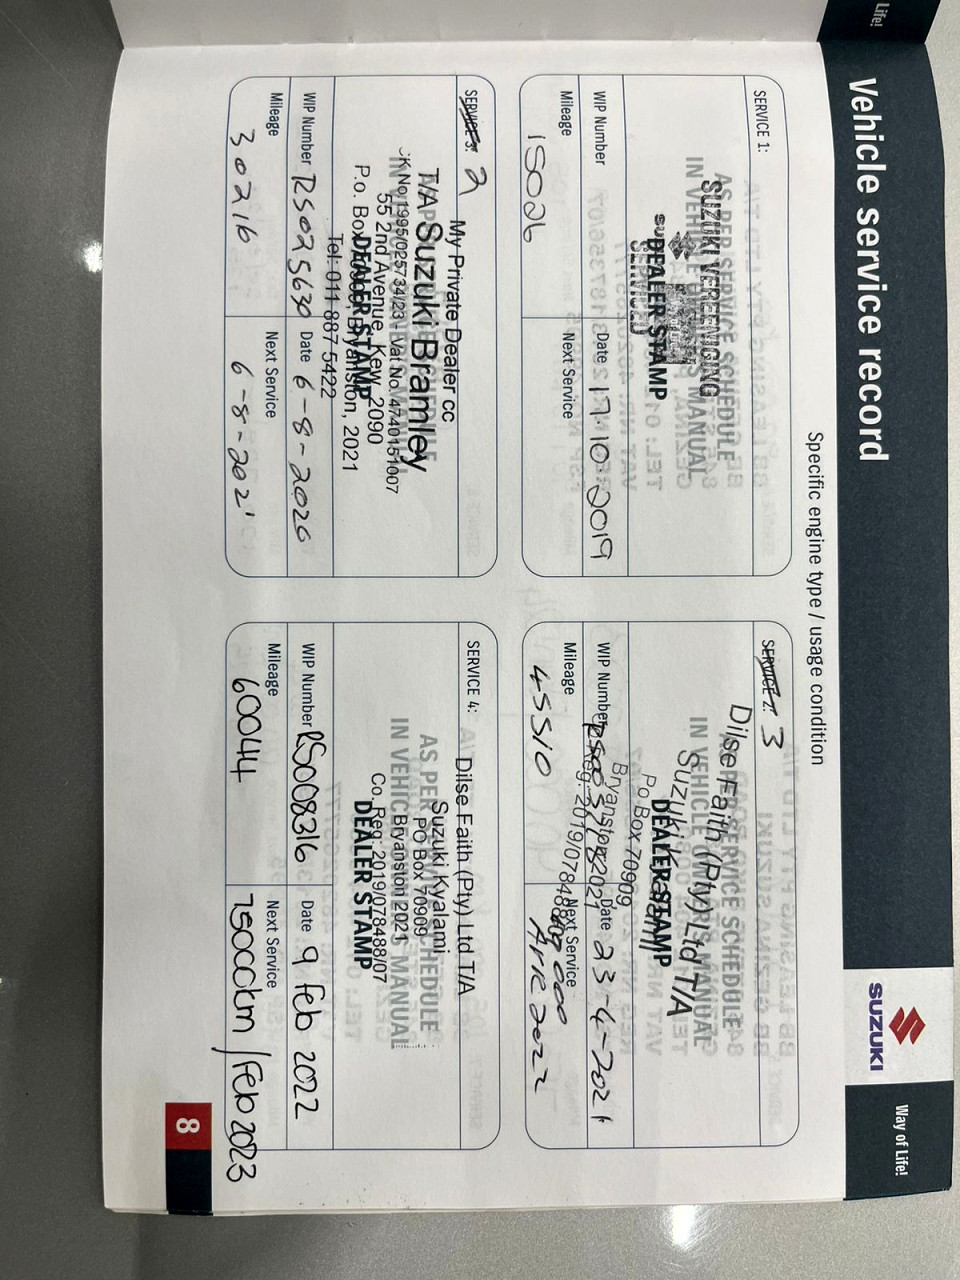 Life!
Vehicle service record
SUZUKI
Way of Life!
Specific engine type / usage condition
SERVICE 1:
AS PER SERVICE SCHEDULE
IN VEHICLE MANUAL
SUZUKI VEREENIGING
DEALER STAMP
SERVICED
WIP Number
Date 17.10.2019
Mileage
15026
Next Service
SERVICE 2: 3
Dilse Faith (Pty) Ltd T/A
Suzuki Kyalami
Po Box 70909
Bryanston 2021
Co. Reg: 2019/078488/07
SERVICE SCHEDULE
IN VEHICLE MANUAL
DEALER STAMP
WIP Number
Date 23-4-2021
Mileage
45510
Next Service
60 000
SERVICE 3: 2
My Private Dealer cc
T/A Suzuki Bramley
CK No 1995/025734/23 - Vat No. 4740151007
55 2nd Avenue, Kew, 2090
P.o. Box 70909, Bryanston, 2021
Tel: 011 887 5422
DEALER STAMP
WIP Number RS025630
Date 6-8-2020
Mileage
30216
Next Service
6-8-2021
SERVICE 4:
Dilse Faith (Pty) Ltd T/A
Suzuki Kyalami
PO Box 70909
Bryanston 2021
Co. Reg: 2019/078488/07
AS PER SERVICE SCHEDULE
IN VEHICLE MANUAL
DEALER STAMP
WIP Number RS008316
Date 9 Feb 2022
Mileage
60044
Next Service
75000km / Feb 2023
8